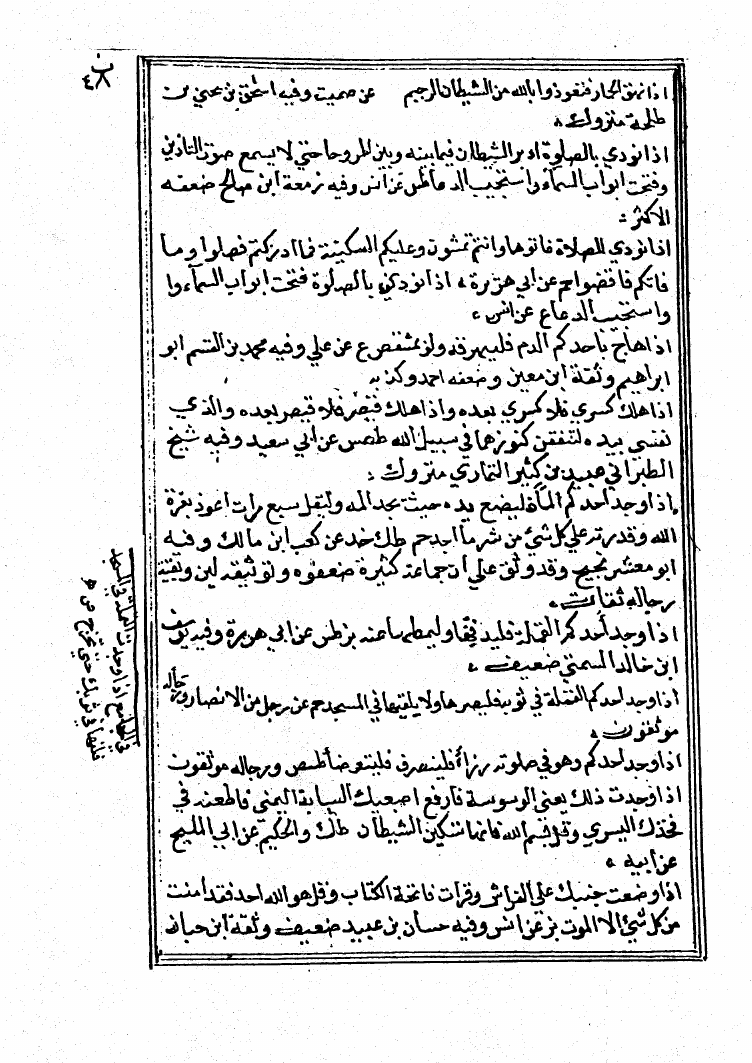 اذا نهق الحمار فتعوذوا بالله من الشيطان الرجيم عن صهيب وفيه اسحق بن يحيى بن
طلحة متروك
اذا نودي بالصلوة ادبر الشيطان فيما بينه وبين الروحا حتى لا يسمع صوت التاذين
وفتحت ابواب السماء واستجيب الدعا طس عن انس وفيه زمعة ابن صالح ضعفه
الاكثر
اذا نودي للصلاة فاتوها وانتم تمشون وعليكم السكينة فما ادركتم فصلوا وما
فاتكم فاقضوا حم عن ابي هريرة اذا نودي بالصلوة فتحت ابواب السماء وا
واستجيب الدعا ع عن انس
اذا هاج باحدكم الدم فليهرقه ولو بمشقص ع عن علي وفيه محمد بن القسم ابو
ابراهيم وثقة ابن معين وضعفه احمد وكذبه
اذا هلك كسري فلا كسري بعده واذا هلك قيصر فلا قيصر بعده والذي
نفسي بيده لتنفقن كنوزهما في سبيل الله طص عن ابي سعيد وفيه شيخ
الطبراني عبيد بن كثير التماري متروك
اذا وجد احدكم الما فليضع يده حيث يجد المه وليقل سبع مرات اعوذ بعزة
الله وقدرته علي كل شئ من شر ما اجد حم طك خد عن كعب ابن مالك وفيه
ابو معشر نجيح وقد وثق علي أن جماعة كثيرة ضعفوه وتوثيقه لين وبقية
رجاله ثقات
اذا وجد أحدكم القملة فليدفنها وليمطها عنه بز طس عن ابي هريرة وفيه يوسف
ابن خالد السمتي ضعيف
اذا وجد احدكم القملة في ثوبه فليصرها ولا يلقيها في المسجد حم عن رجل من الانصار ورجاله
موثقون
اذا وجد احدكم وهو في صلوته رزا فلينصرف فليتوضأ طس ورجاله موثقون
اذا وجدت ذلك يعني الوسوسة فارفع اصبعك السبابة اليمني فاطعنه في
فخذك اليسري وقل بسم الله فانها سكين الشيطان طك والحكيم عن ابي المليح
عن أبيه
اذا وضعت جنبك على الفراش وقرات فاتحة الكتاب وقل هو الله احد فقد امنت
من كل شئ الا الموت بز عن انس وفيه حسان بن عبيد ضعيف وثقة ابن حبان
في الجامع اذا وجدت القملة في المسجد
فلفها في ثوبك حتى تخرج ص